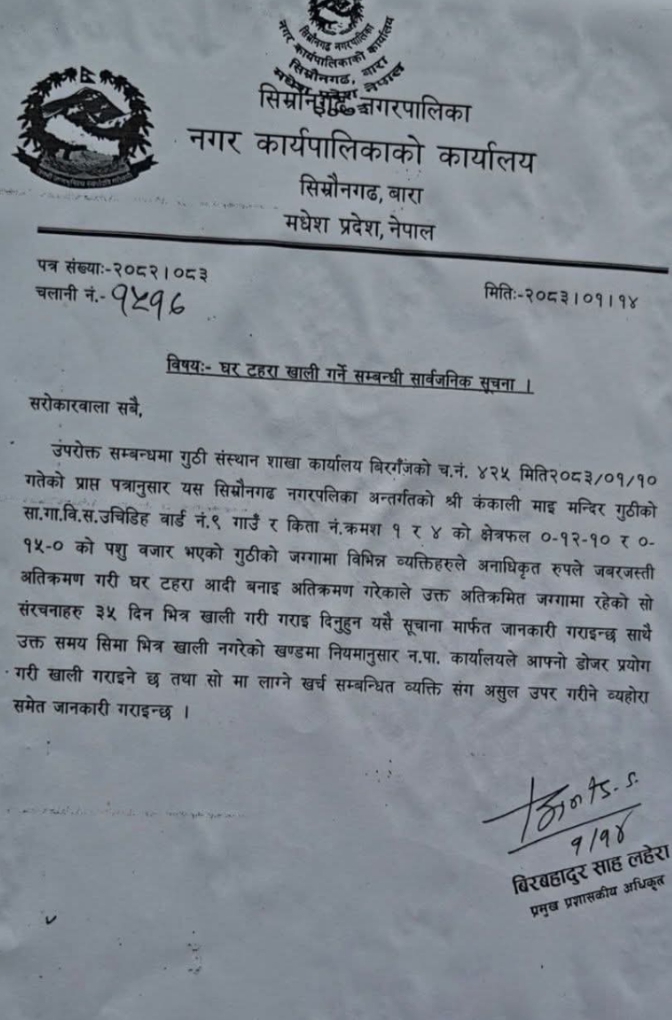 सिम्रौनगढ नगरपालिका
नगर कार्यपालिकाको कार्यालय
सिम्रौनगढ, बारा
मधेश प्रदेश, नेपाल
सिम्रौनगढ नगरपालिका
नगर कार्यपालिकाको कार्यालय
सिम्रौनगढ, बारा
मधेश प्रदेश, नेपाल
पत्र संख्याः-२०८२।०८३
मितिः-२०८३।०१।१४
चलानी नं.- १५१६
विषयः- घर टहरा खाली गर्ने सम्बन्धी सार्वजनिक सूचना ।
सरोकारवाला सबै,
उपरोक्त सम्बन्धमा गुठी संस्थान शाखा कार्यालय बिरगँजको च.नं. ४२५ मिति२०८३/०१/१०
गतेको प्राप्त पत्रानुसार यस सिम्रौनगढ नगरपलिका अन्तर्गतको श्री कंकाली माइ मन्दिर गुठीको
सा.गा.वि.स.उचिडिह वार्ड नं.९ गाउँ र किता नं.क्रमश १ र ४ को क्षेत्रफल ०-१२-१० र ०-
१५-० को पशु वजार भएको गुठीको जग्गामा विभिन्न व्यक्तिहरुले अनाधिकृत रुपले जबरजस्ती
अतिक्रमण गरी घर टहरा आदी बनाइ अतिक्रमण गरेकाले उक्त अतिक्रमित जग्गामा रहेको सो
संरचनाहरु ३५ दिन भित्र खाली गरी गराइ दिनुहुन यसै सूचाना मार्फत जानकारी गराइन्छ साथै
उक्त समय सिमा भित्र खाली नगरेको खण्डमा नियमानुसार न.पा. कार्यालयले आफ्नो डोजर प्रयोग
गरी खाली गराइने छ तथा सो मा लाग्ने खर्च सम्बन्धित व्यक्ति संग असुल उपर गरीने व्यहोरा
समेत जानकारी गराइन्छ ।
१/१४
बिरबहादुर साह लहेरा
प्रमुख प्रशासकीय अधिकृत